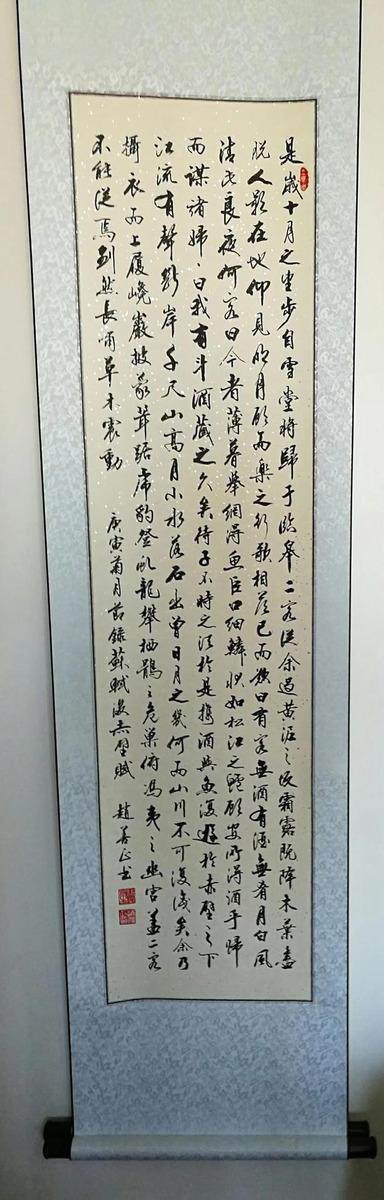 是歲十月之望步自雪堂將歸于臨皋二客從余過黃泥之坂霜露既降木葉盡
脫人影在地仰見明月顧而樂之行歌相答已而嘆曰有客無酒有酒無肴月白風
清此良夜何客曰今者薄暮舉網得魚巨口細鱗狀如松江之鱸顧安所得酒乎歸
而謀諸婦曰我有斗酒藏之久矣待子不時之須於是攜酒與魚復遊於赤壁之下
江流有聲斷岸千尺山高月小水落石出曾日月之幾何而山川不可復識矣余乃
攝衣而上履巉巖披蒙茸踞虎豹登虬龍攀栖鶻之危巢俯馮夷之幽宮蓋二客
不能從焉劃然長嘯草木震動
庚寅菊月節錄蘇軾後赤壁賦
趙善正書